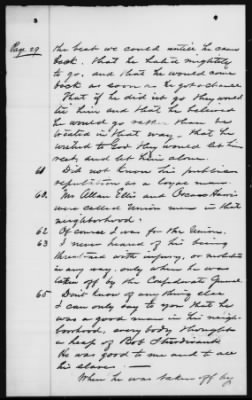 Page 29
the best we could untill he came
back. that he hated mightily
to go, and that he would come
back as soon as he got a chance
That if he did not go they would
tie him and that he believed
he would go rather than be
treated in that way, that he
wished to God they would let him
rest, and let him alone.
61 Did not know his public
reputation as a loyal man
60. Mr Allan Ellis and
were called Union men in that
neighborhood.
62 Of course I was for the Union.
63 I never heard of his being
threatened with injury, or molested
in any way, only when he was
taken off by the Confederate
65 Don't know of any thing else
I can only say to you that he
was a good man in his neigh-
borhood, every body thought
a heap of Bob Sturdivant
He was good to me and to all
his slaves. —
When he was taken off by